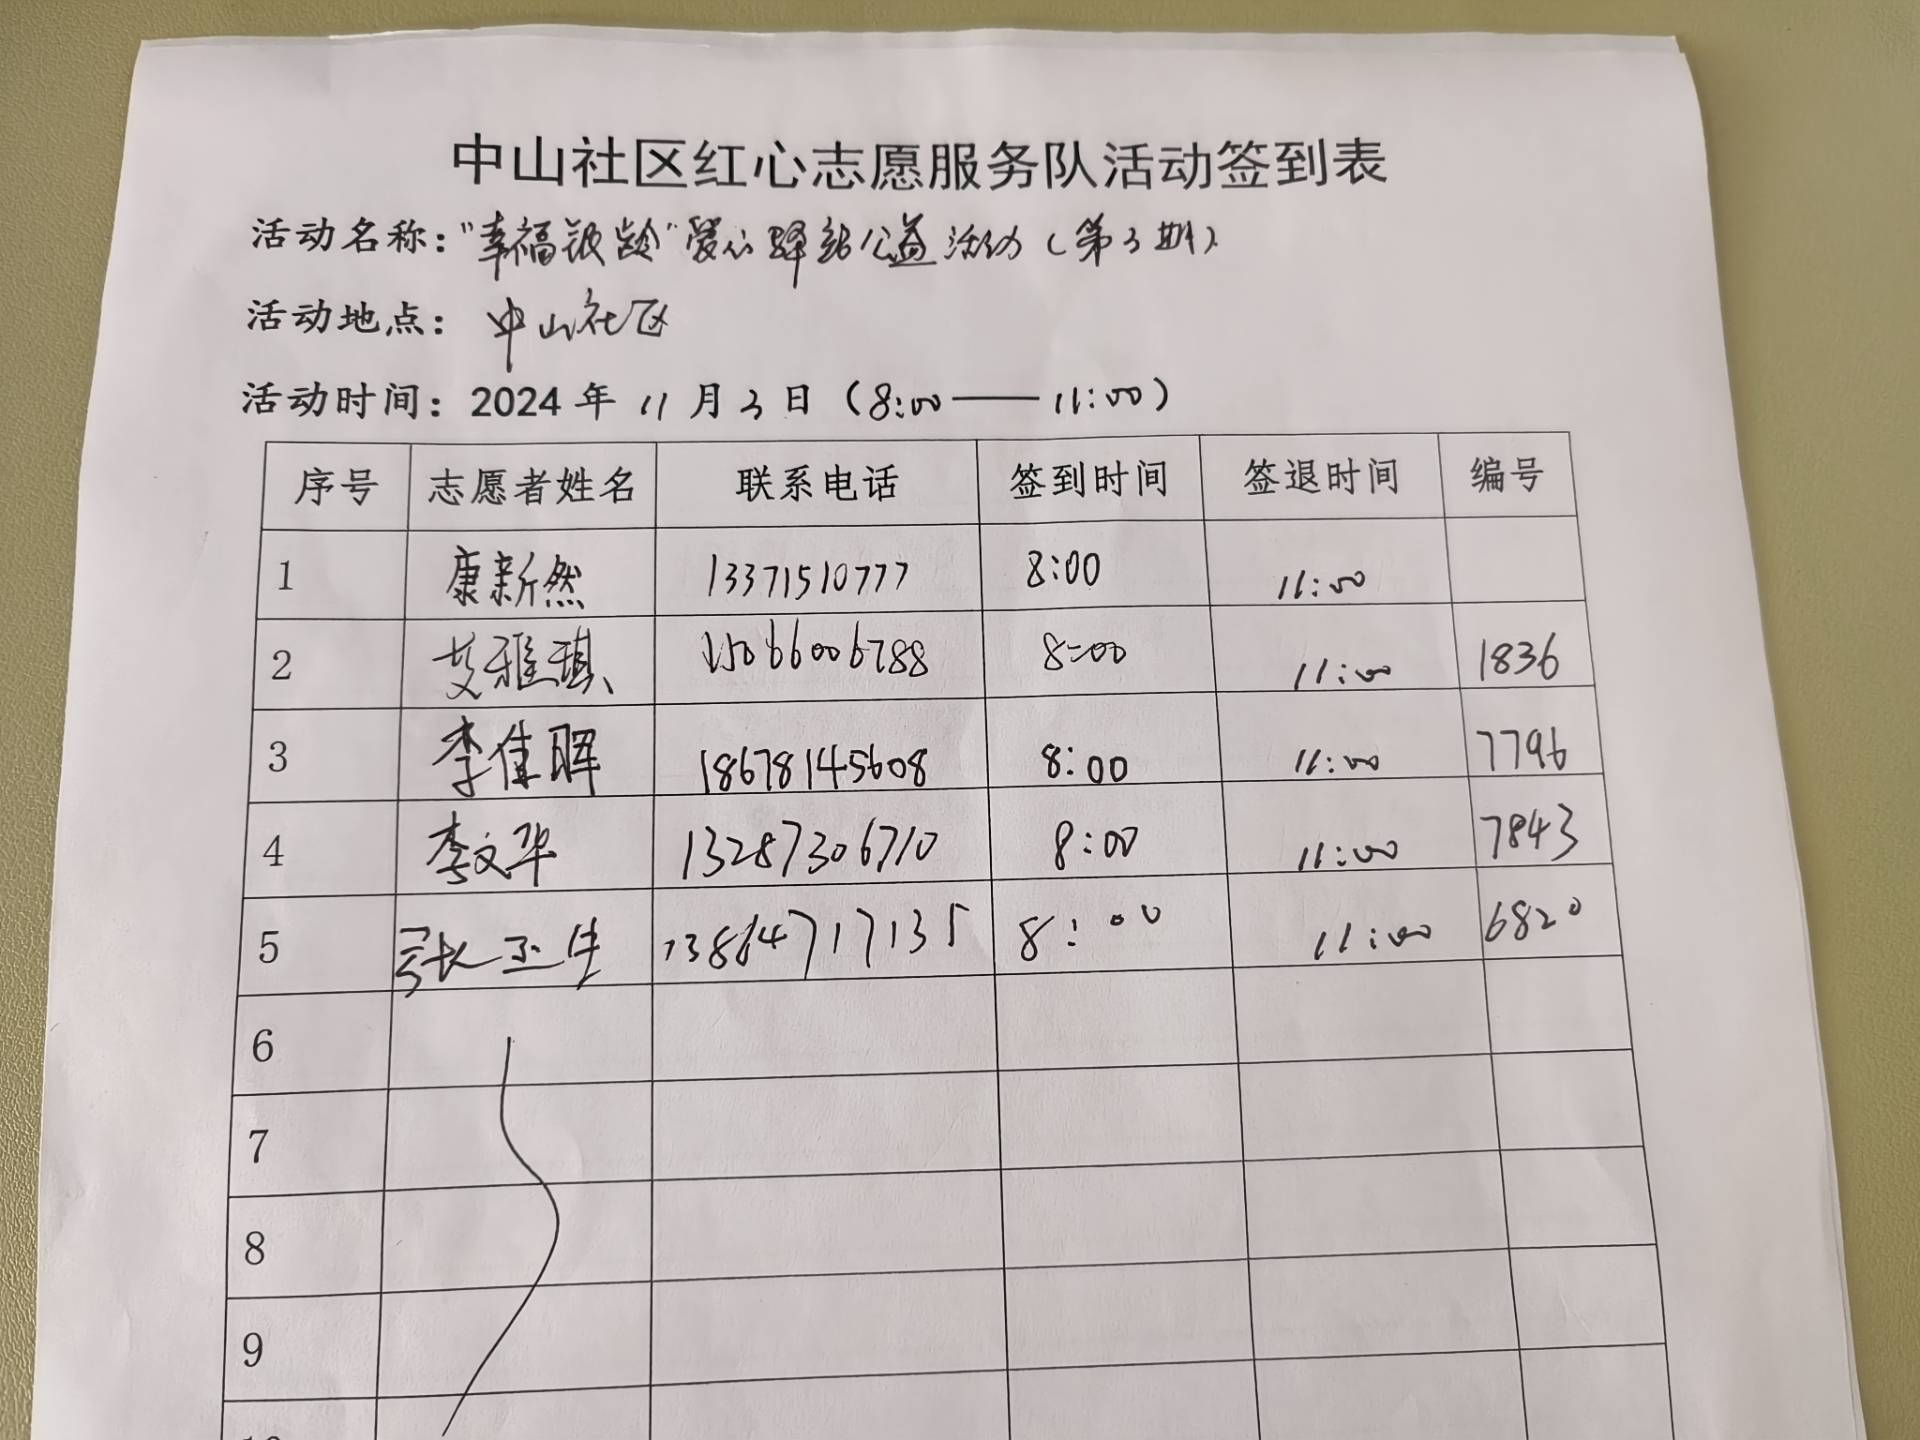 中山社区红心志愿服务队活动签到表
活动名称："幸福银龄"爱心驿站公益活动（第3期）
活动地点：中山社区
活动时间：2024年 11月3日（8:00——11:00）
序号 志愿者姓名 联系电话 签到时间 签退时间 编号
1 康新然 13371510777 8:00 11:00
2 艾雅琪 15066006788 8:00 11:00 1836
3 李佳晖 18678145608 8:00 11:00 7796
4 李文华 13287306710 8:00 11:00 7843
5 张玉生 13864717135 8:00 11:00 6820
6
7
8
9